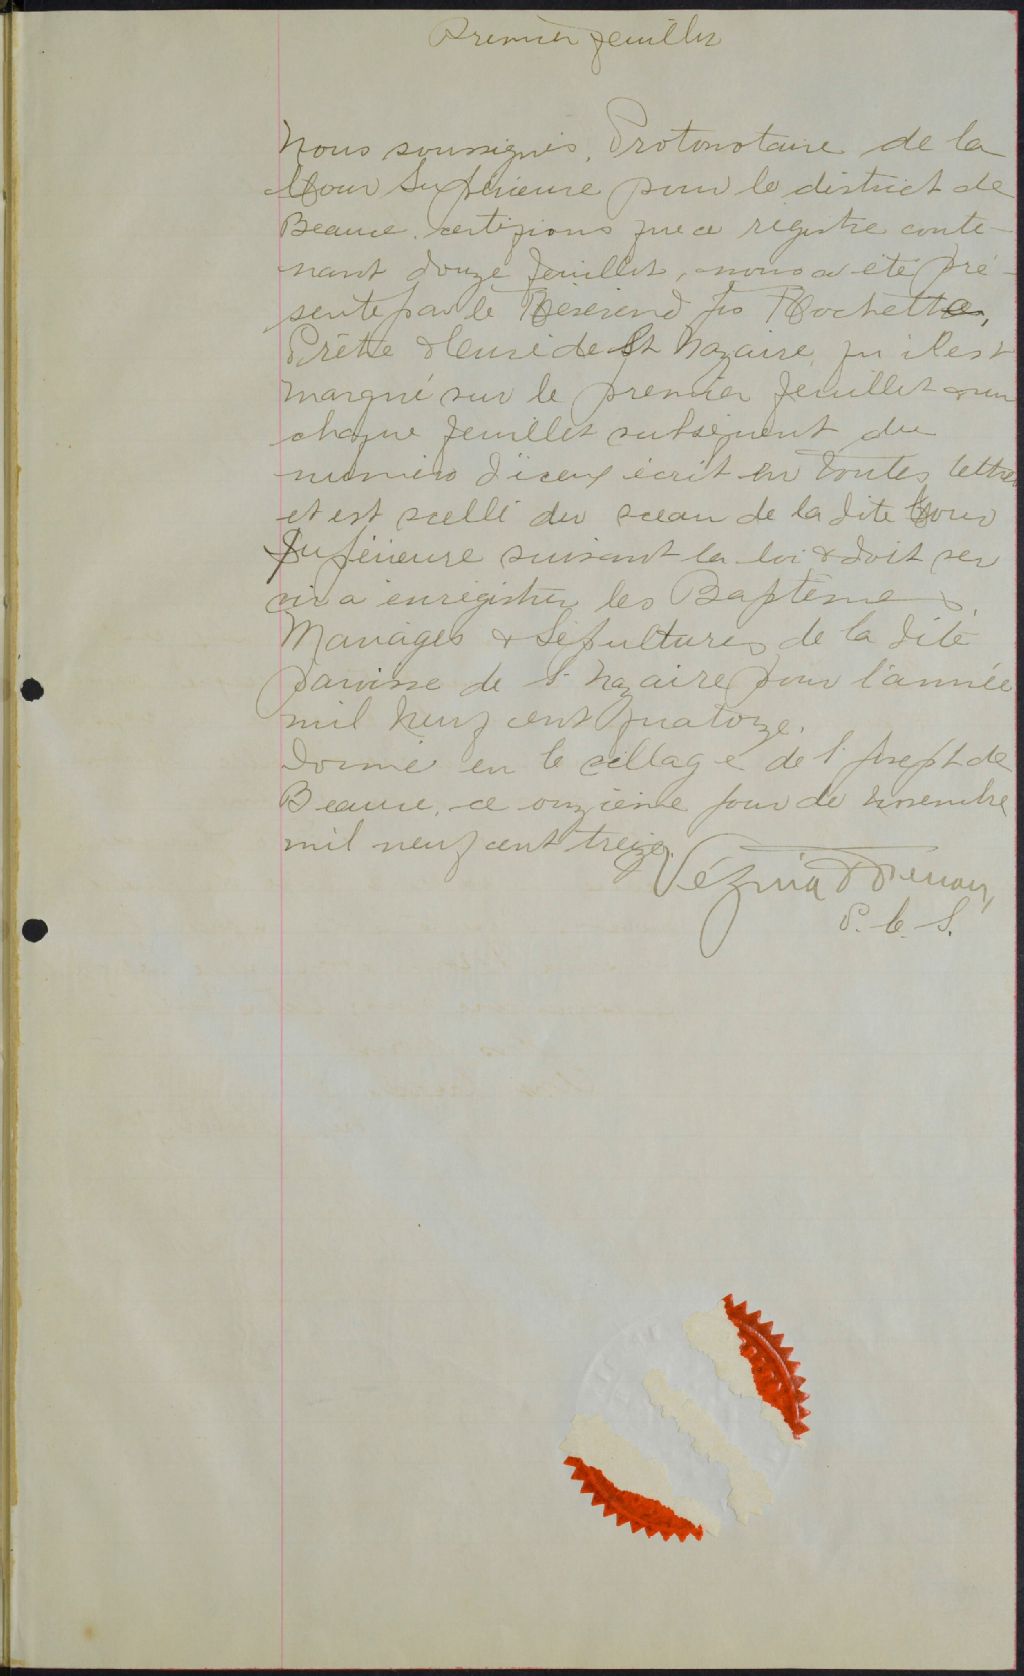 Premier feuillet
Nous soussignés, Protonotaire de la
Cour Supérieure pour le district de
Beauce, certifions que ce régistre conte-
nant douze feuillets, nous a été pré-
senté par le Révérend Jos Rochette,
Prêtre & Curé de St Nazaire, qu'il est
marqué sur le premier feuillet & sur
chaque feuillet subséquent du
numéro d'iceux écrit en toutes lettres
et est scellé du sceau de la dite Cour
Supérieure suivant la loi & doit ser
vir a enrégistrer les Baptêmes,
Mariages & Sépultures de la dite
paroisse de St Nazaire pour l'année
mil neuf cent quatorze.
Donné en le village de St Joseph de
Beauce, ce onzième jour de novembre
mil neuf cent treize.
Vézina &
P. C. S.